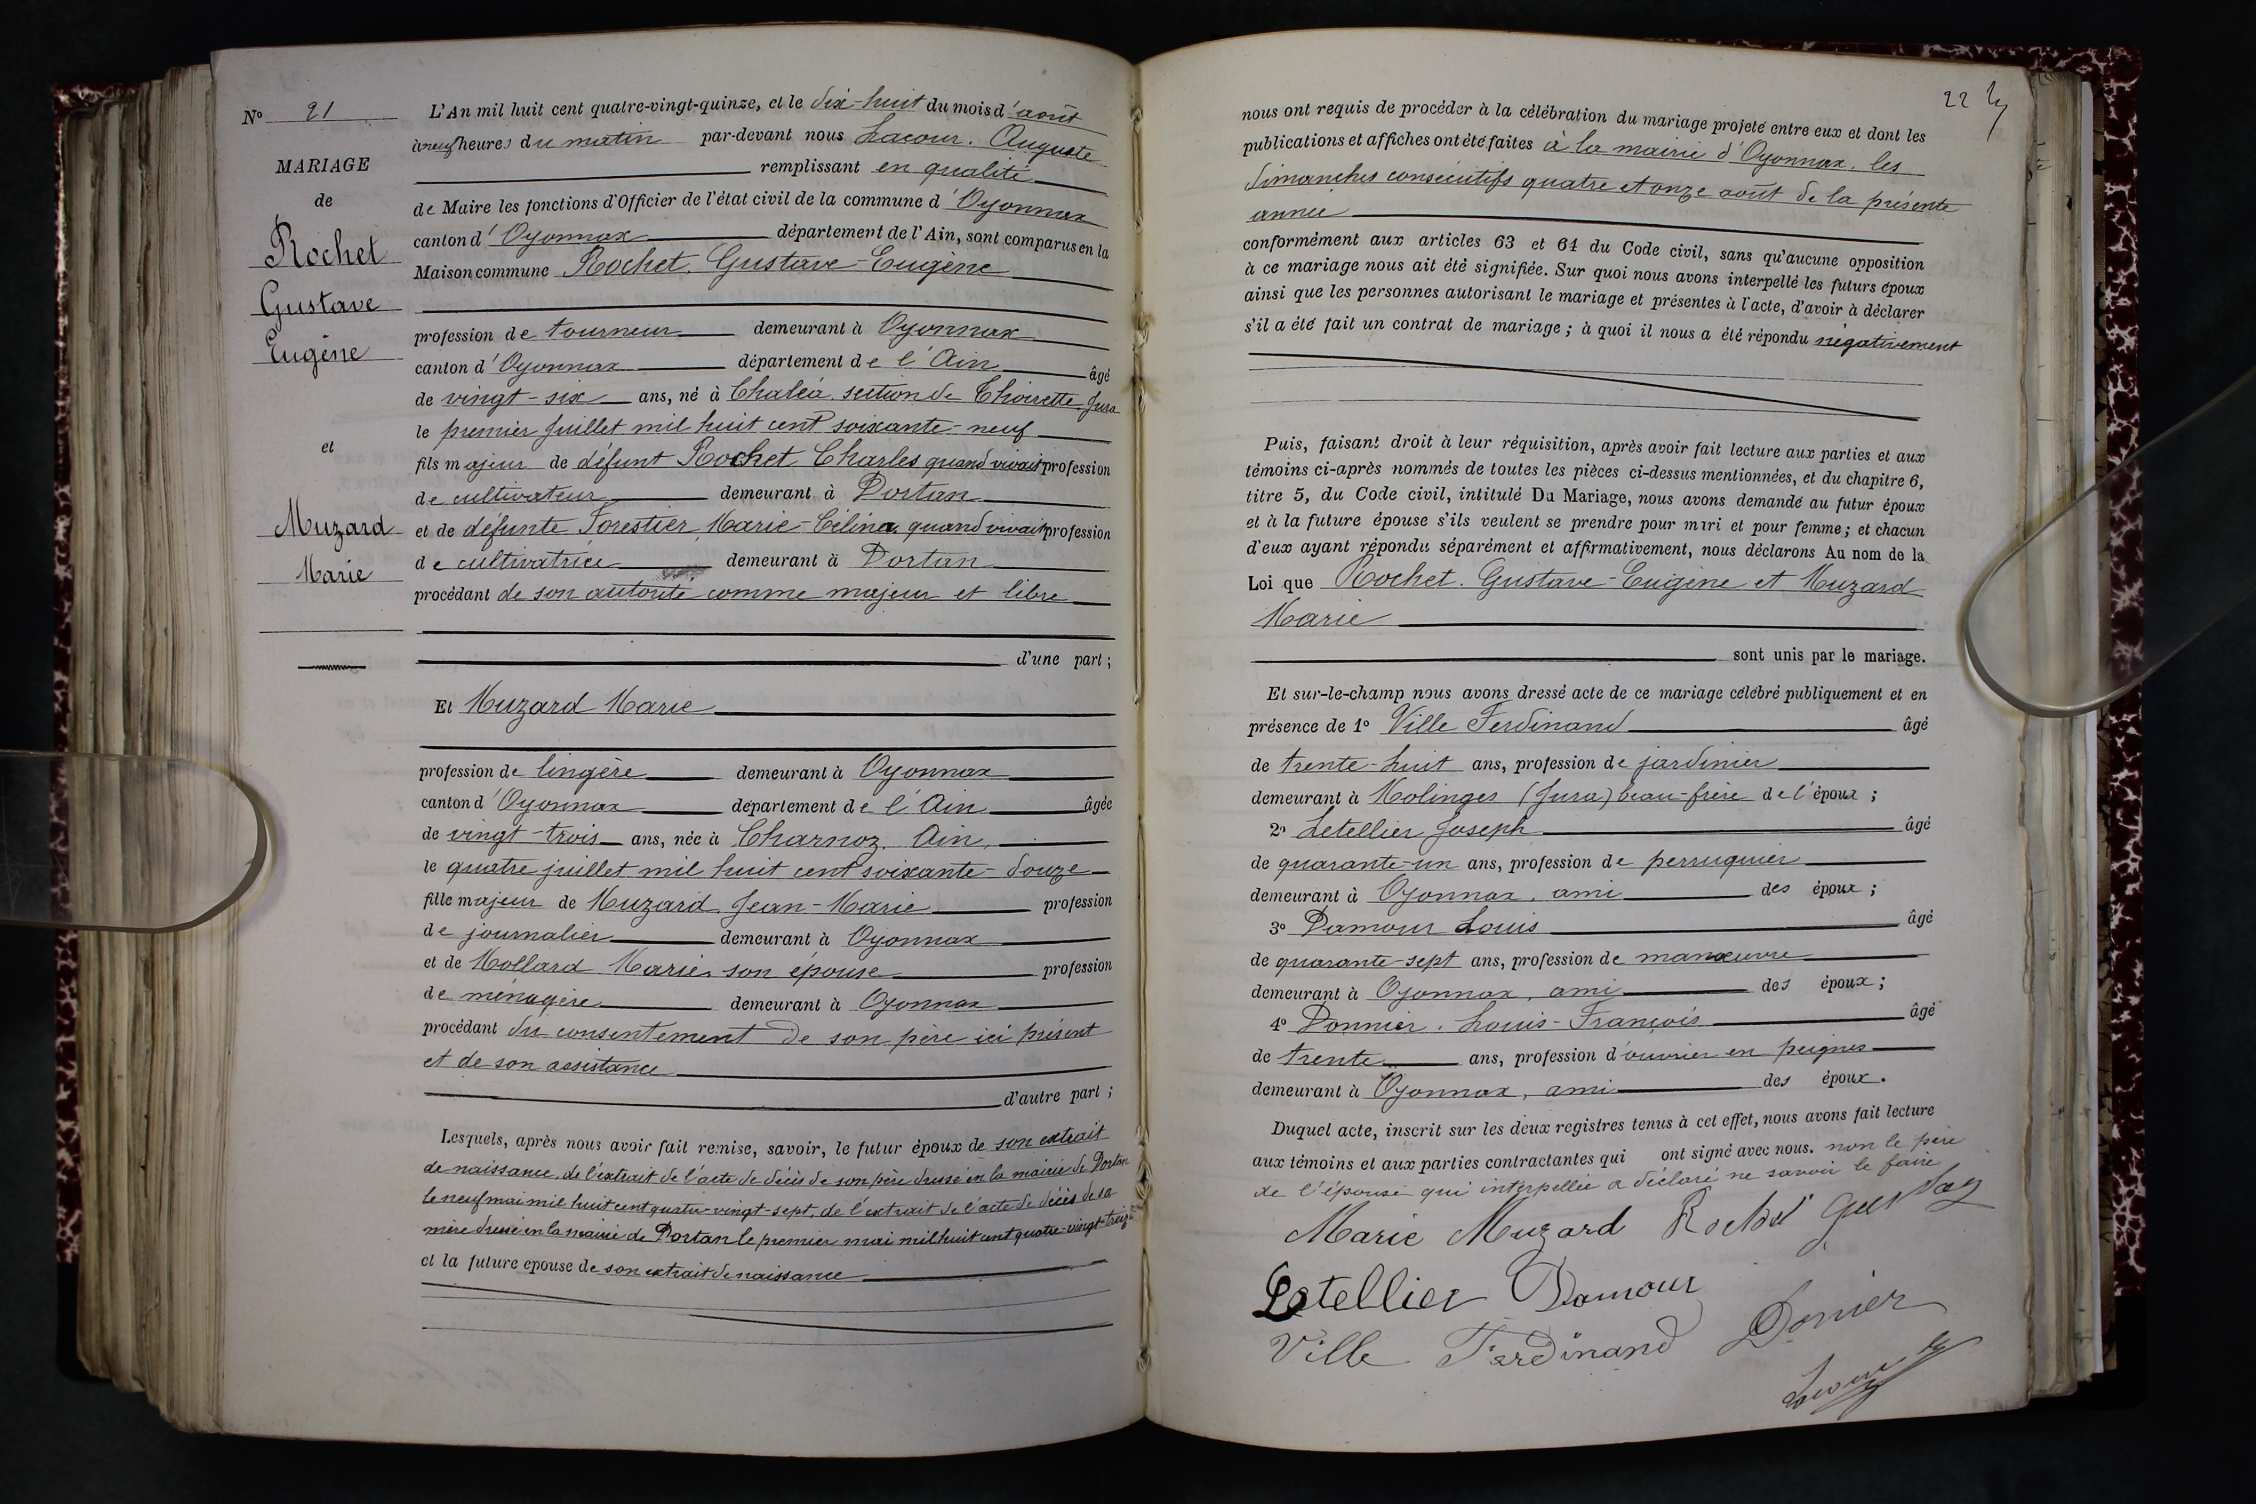 No 21
MARIAGE
de
Rochet
Gustave
Eugène
et
Muzard
Marie
L'An mil huit cent quatre-vingt-quinze, et le dix-huit du mois d'août
à neuf heures du matin par-devant nous Lacour. Auguste
remplissant en qualité
de Maire les fonctions d'Officier de l'état civil de la commune d'Oyonnax
canton d'Oyonnax département de l'Ain, sont comparus en la
Maison commune Rochet. Gustave-Eugène
profession de tourneur demeurant à Oyonnax
canton d'Oyonnax département de l'Ain âgé
de vingt-six ans, né à Chaléa section de Thoirette Jura
le premier Juillet mil huit cent soixante-neuf
fils majeur de défunt Rochet Charles quand vivait profession
de cultivateur demeurant à Dortan
et de défunte Forestier, Marie-Célina quand vivait profession
de cultivatrice demeurant à Dortan
procédant de son autorité comme majeur et libre
d'une part ;
Et Muzard Marie
profession de lingère demeurant à Oyonnax
canton d'Oyonnax département de l'Ain âgée
de vingt-trois ans, née à Charnoz. Ain.
le quatre juillet mil huit cent soixante-douze
fille majeur de Muzard. Jean-Marie profession
de journalier demeurant à Oyonnax
et de Mollard Marie, son épouse profession
de ménagère demeurant à Oyonnax
procédant du consentement de son père ici présent
et de son assistance
d'autre part ;
Lesquels, après nous avoir fait remise, savoir, le futur époux de son extrait
de naissance, de l'extrait de l'acte de décès de son père dressé en la mairie de Dortan
le neuf mai mil huit cent quatre-vingt-sept, de l'extrait de l'acte de décès de sa
mère dressé en la mairie de Dortan le premier mai mil huit cent quatre-vingt-treize
et la future epouse de son extrait de naissance
22
nous ont requis de procéder à la célébration du mariage projeté entre eux et dont les
publications et affiches ont été faites à la mairie d'Oyonnax. les
dimanches consécutifs quatre et onze août de la présente
année
conformément aux articles 63 et 64 du Code civil, sans qu'aucune opposition
à ce mariage nous ait été signifiée. Sur quoi nous avons interpellé les futurs époux
ainsi que les personnes autorisant le mariage et présentes à l'acte, d'avoir à déclarer
s'il a été fait un contrat de mariage ; à quoi il nous a été répondu négativement
Puis, faisant droit à leur réquisition, après avoir fait lecture aux parties et aux
témoins ci-après nommés de toutes les pièces ci-dessus mentionnées, et du chapitre 6,
titre 5, du Code civil, intitulé Du Mariage, nous avons demandé au futur époux
et à la future épouse s'ils veulent se prendre pour mari et pour femme ; et chacun
d'eux ayant répondu séparément et affirmativement, nous déclarons Au nom de la
Loi que Rochet. Gustave-Eugène et Muzard
Marie
sont unis par le mariage.
Et sur-le-champ nous avons dressé acte de ce mariage célébré publiquement et en
présence de 1o Ville Ferdinand âgé
de trente-huit ans, profession de jardinier
demeurant à Molinges (Jura) beau-frère de l'époux ;
2o Letellier Joseph âgé
de quarante-un ans, profession de perruquier
demeurant à Oyonnax, ami des époux ;
3o Damour Louis âgé
de quarante-sept ans, profession de manœuvre
demeurant à Oyonnax, ami des époux ;
4o Donnier. Louis-François âgé
de trente ans, profession d'ouvrier en peignes
demeurant à Oyonnax, ami des époux.
Duquel acte, inscrit sur les deux registres tenus à cet effet, nous avons fait lecture
aux témoins et aux parties contractantes qui ont signé avec nous. non le père
de l'épouse qui interpellée a déclaré ne savoir le faire
Marie Muzard Rochet
Letellier Damour
Ville Ferdinand Donier